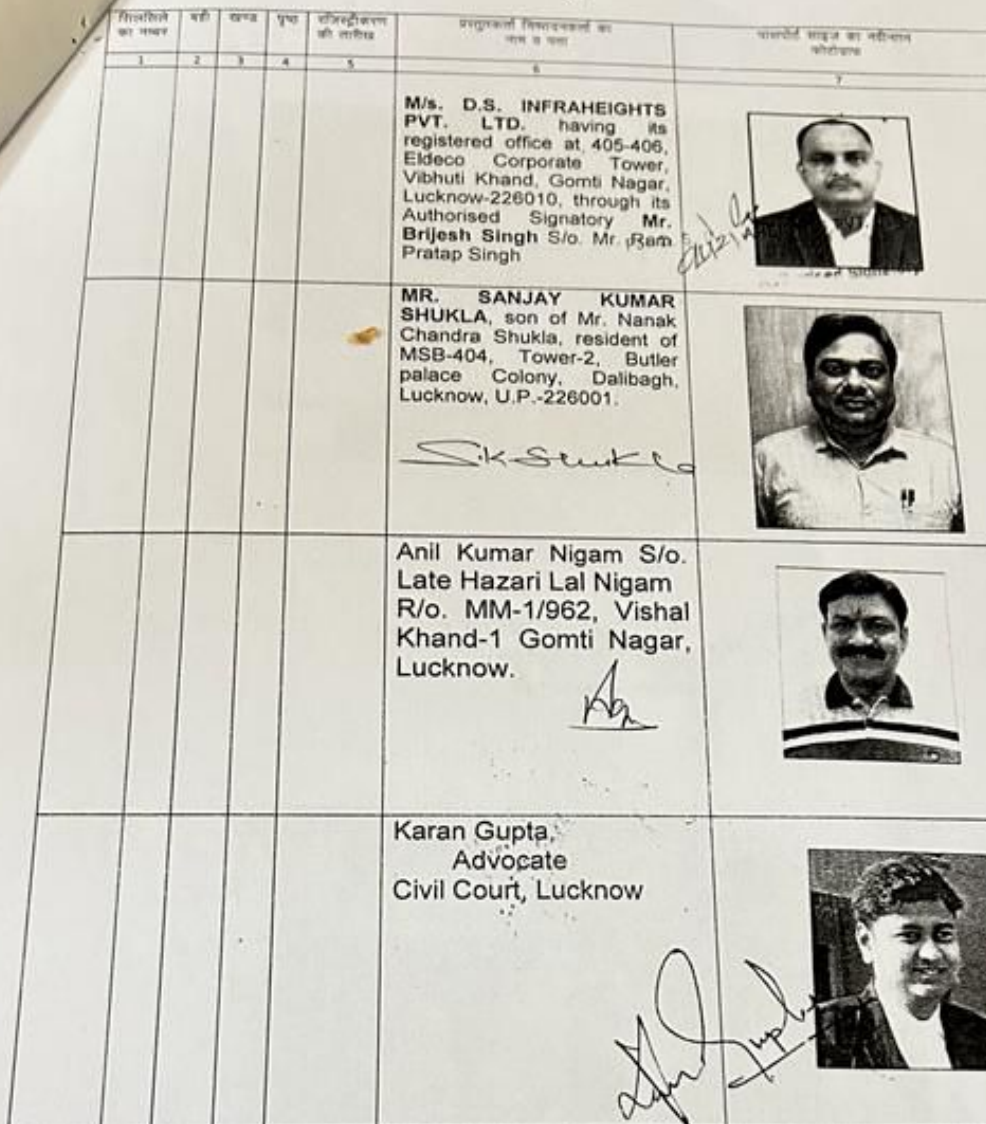 सिलसिले
का नम्बर
बही
खण्ड
पृष्ठ
रजिस्ट्रीकरण
की तारीख
प्रस्तुतकर्ता निष्पादनकर्ता का
नाम व पता
पासपोर्ट साइज का नवीनतम
फोटोग्राफ
1 2 3 4 5 6 7
M/s. D.S. INFRAHEIGHTS
PVT. LTD. having its
registered office at 405-406,
Eldeco Corporate Tower,
Vibhuti Khand, Gomti Nagar,
Lucknow-226010, through its
Authorised Signatory Mr.
Brijesh Singh S/o. Mr. Ram
Pratap Singh
MR. SANJAY KUMAR
SHUKLA, son of Mr. Nanak
Chandra Shukla, resident of
MSB-404, Tower-2, Butler
palace Colony, Dalibagh,
Lucknow, U.P.-226001.
S.K Shukla
Anil Kumar Nigam S/o.
Late Hazari Lal Nigam
R/o. MM-1/962, Vishal
Khand-1 Gomti Nagar,
Lucknow.
Karan Gupta,
Advocate
Civil Court, Lucknow
Gupta